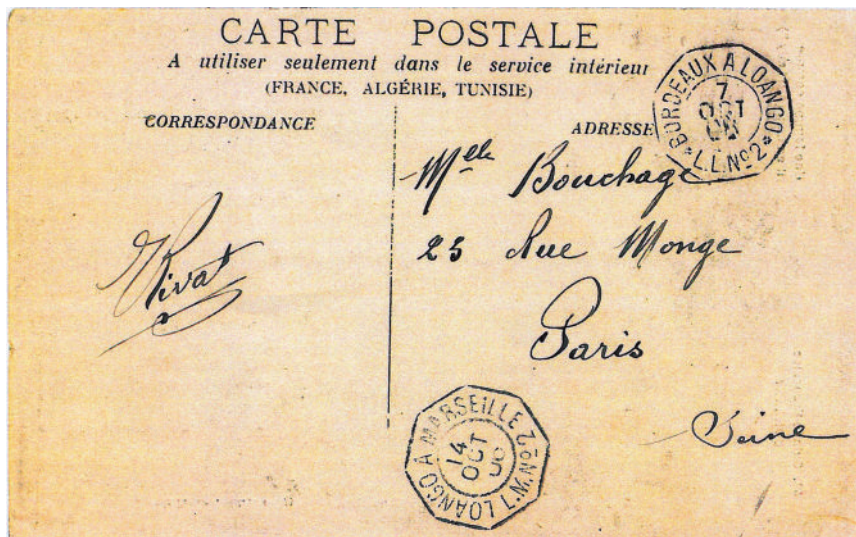 CARTE POSTALE
A utiliser seulement dans le service intérieur
(FRANCE, ALGÉRIE, TUNISIE)
CORRESPONDANCE
ADRESSE
BORDEAUX A LOANGO
7
OCT
* L.L.Nº2 *
Mlle Bouchage
23 Rue Monge
Paris
Seine
Rivat
LOANGO A MARSEILLE
14
OCT
Nº2